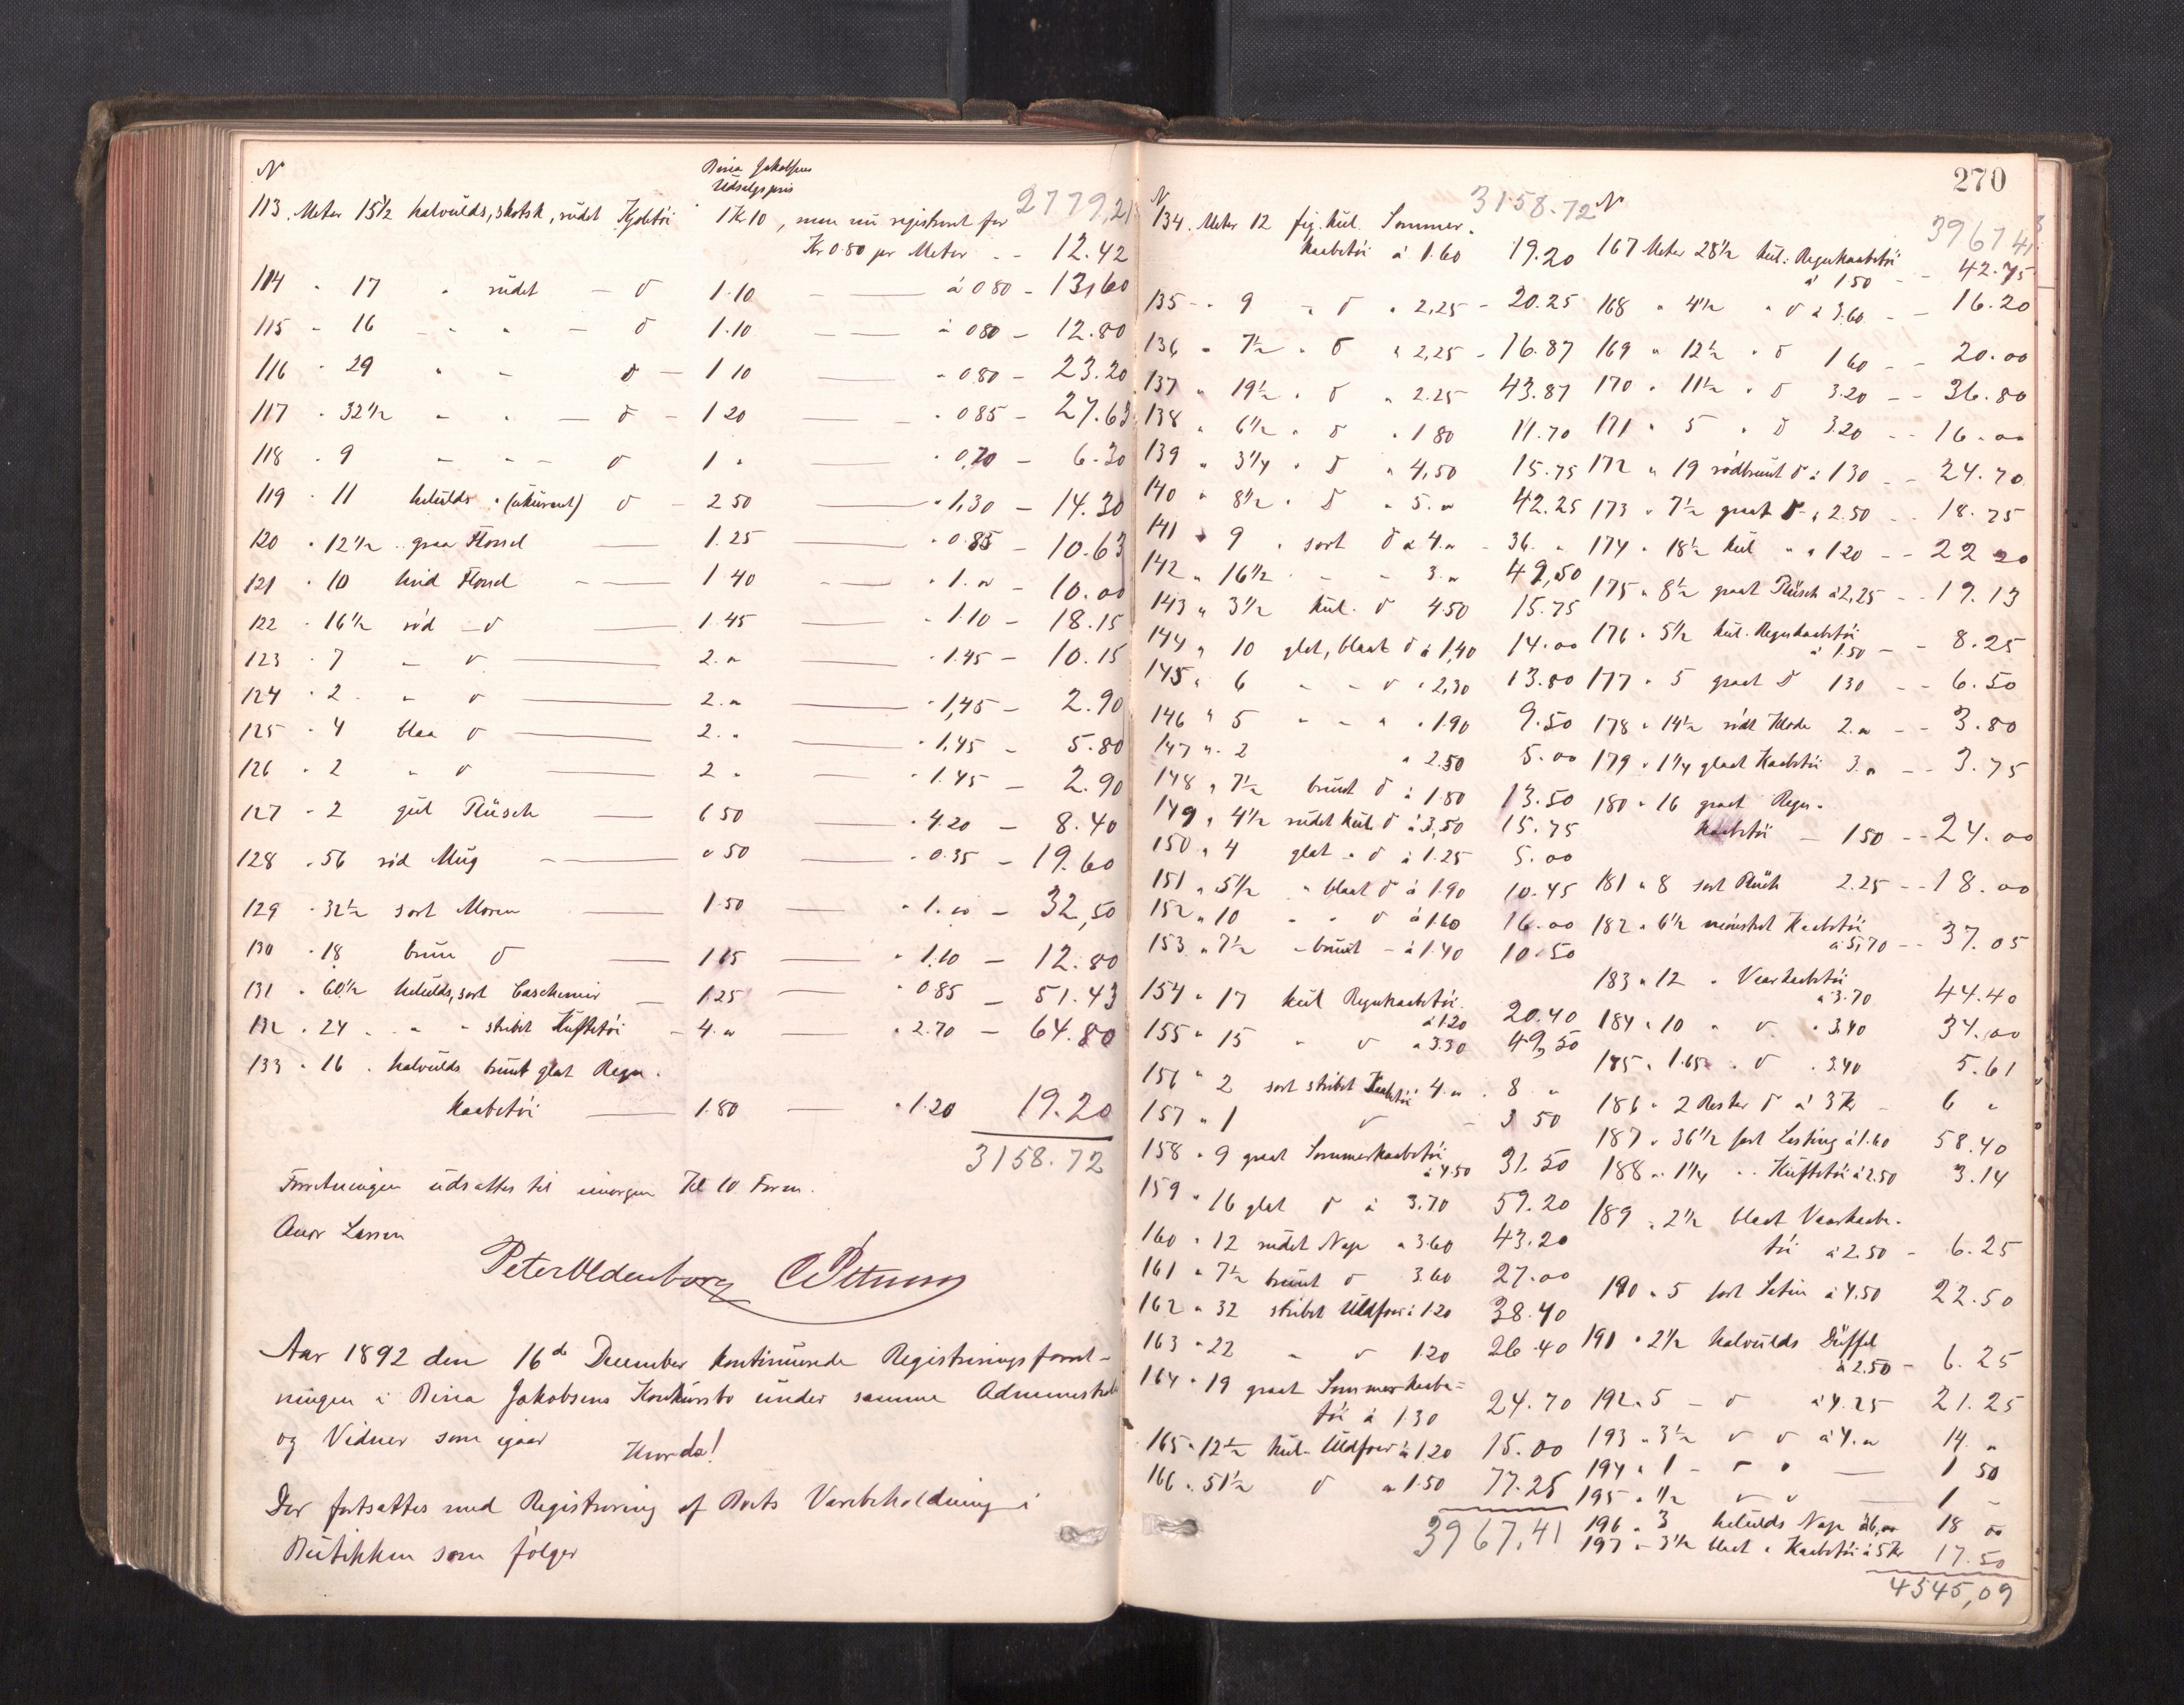 N
Dina Jakobsens
Udsalgspris
2779,21
113. Meter 15½ halvulds, skotsk, rudet Kjoletøi 1 Kr 10, men nu registreret for
Kr 0.80 pr Meter - - 12.42
114 " 17 " rudet - d 1.10 - à 0 80 - 13,60
115 - 16 - " " - d 1.10 - à 080 - 12.80
116 - 29 " - d - 1 10 - " 0.80 - 23.20
117 - 32½ - " - d - 1 20 - " 085 - 27.63
118 - 9 - " - d 1 " - " 0,70 - 6.30
119 - 11 helulds " (ukurant) d - 2 50 - " 1,30 - 14.30
120 " 12½ " graa Flonel - 1.25 - " 0.85 - 10.63
121 " 10 hvid Flonel - 1 40 - " 1. " - 10.00
122 - 16½ rød - d - 1.45 - " 1.10 - 18.15
123 - 7 - d - 2. " - " 1.45 - 10.15
124 " 2 - " d - 2. " - " 1,45 - 2.90
125 - 4 blaa d - 2. " - " 1,45 - 5.80
126 " 2 " d - 2 " - " 1.45 - 2.90
127 - 2 gul Plüsch - 6 50 - " 4.20 - 8.40
128 . 56 rød Mug - " 50 - " 0.35 - 19.60
129 - 32½ sort Moren - 1.50 - " 1.00 - 32,50
130 " 18 brun d - 1.15 - " 1.10 - 12.80
131 " 60½ helulds, sort Caschemir - 1.25 - " 0.85 - 51.43
132 " 24 " " " stribet Kuftetøi - 4. " - " 2.70 - 64.80
133 " 16 . halvulds brunt glat Regn-
kaabetøi - 1.80 - " 1.20 19.20
3158.72
Forretningen udsattes til imorgen Kl 10 Form.
Anor Larsen
Peter Oldenborg
Aar 1892 den 16de December kontinuerede Registreringsforret-
ningen i Dina Jakobsens Konkursbo under samme Administrat
og Vidner som igaar
Hvorda!
Der fortsattes med Registrering af Boets Varebeholdning i
Butikken som følger
270
N 3158.72
134. Meter 12 fig. hul. Sommer-
kaabetøi à 1.60 19.20
135 - " 9 " d " 2,25 - 20.25
136 " 7½ " d " 2,25 - 16.87
137 " 19½ " d " 2.25 43.87
138 " 6½ " d " 1 80 11.70
139 " 3¼ " d " 4,50 15.75
140 " 8½ " d " 5. " 42.25
141 " 9 " sort d à 4. " - 36. "
142 " 16½ - - 3. " 49,50
143 " 3½ hul. d 4.50 15.75
144 " 10 glat, blaat d à 1,40 14.00
145 " 6 - - d " 2,30 13.80
146 " 5 - - " " 1.90 9.50
147 " 2 " 2.50 5.00
148 " 7½ brunt d à 1.80 13.50
149 " 4½ rudet hul. d à 3,50 15.75
150 " 4 glat - d à 1.25 5.00
151 " 5½ " blaat d à 1.90 10.45
152 " 10 - " d à 1.60 16.00
153 " 7½ - brunt - à 1.40 10.50
154 " 17 hul Regnkaabetøi
à 1.20 20.40
155 " 15 " d " 3.30 49,50
156 " 2 sort stribet Kaabetøi 4. " . 8 "
157 " 1 d - 3 50
158 " 9 graat Sommerkaabetøi
à 4.50 31.50
159 " 16 glat d à 3.70 59.20
160 " 12 rudet Nap " 3.60 43.20
161 " 7½ brunt d 3.60 27.00
162 " 32 stribet Uldfoer à 1.20 38.40
163 - 22 - d 1.20 26.40
164 " 19 graat Sommerkaabe=
tøi à 1.30 24.70
165 " 12½ hul. Uldfoer à 1.20 15.00
166 " 51½ d " 1.50 77.25
3967,41
N 3967 41
167 Meter 28½ hul: Regnkaabetøi
à 1 50 - 42.75
168 " 4½ " d à 3.60 - - 16.20
169 " 12½ " d 1 60 - - 20.00
170 " 11½ " d 3.20 - - 36.80
171 " 5 " d 3.20 - - 16.00
172 " 19 rødbrunt d à 1 30 - - 24.70
173 " 7½ graat d " 2.50 - - 18.75
174 " 18½ hul " " 1 20 - - 22 20
175 " 8½ graat Plüsch à 2,25 - - 19.13
176 " 5½ hul. Regnkaabetøi
à 1.50 - - 8.25
177 " 5 graat d 1 30 - - 6.50
178 " 14½ rødt Klæde 2. " - - 3.80
179 " 1¼ glaet Kaabetøi 3. " - - 3.75
180 " 16 graat Regn-
kaabetøi - 1 50 - - 24.00
181 " 8 sort Plüsch 2.25 - - 18.00
182 " 6½ mønstret Kaabetøi
à 5,70 - - 37.05
183 " 12 " Vaarkaabetøi
à 3.70 44.40
184 " 10 " d " 3.40 34.00
185 " 1.65 " d . 3.40 5.61
186 " 2 Rester d à 3 Kr - 6 "
187 " 36½ sort Lasting à 1.60 58.40
188 " 1¼ " Kuftetøi à 2.50 3.14
189 " 2½ blaat Vaarkaabe-
tøi à 2.50 - 6.25
190 " 5 sort Satin à 4.50 22.50
191 " 2½ halvulds Düffel
à 2.50 - 6.25
192 " 5 - d à 4.25 21.25
193 " 3½ d d à 4. " 14 "
194 " 1 - d " - 1 50
195 " ½ d d - 1 -
196 " 3 helulds Nap à 6,00 18 00
197 " 3½ blaat " Kaabetøi à 5 Kr 17.50
4545,09